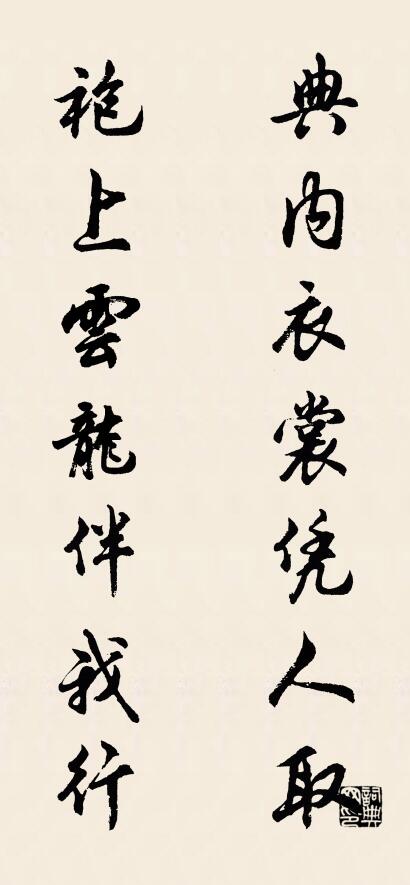 典内衣裳凭人取
袍上雲龍伴我行